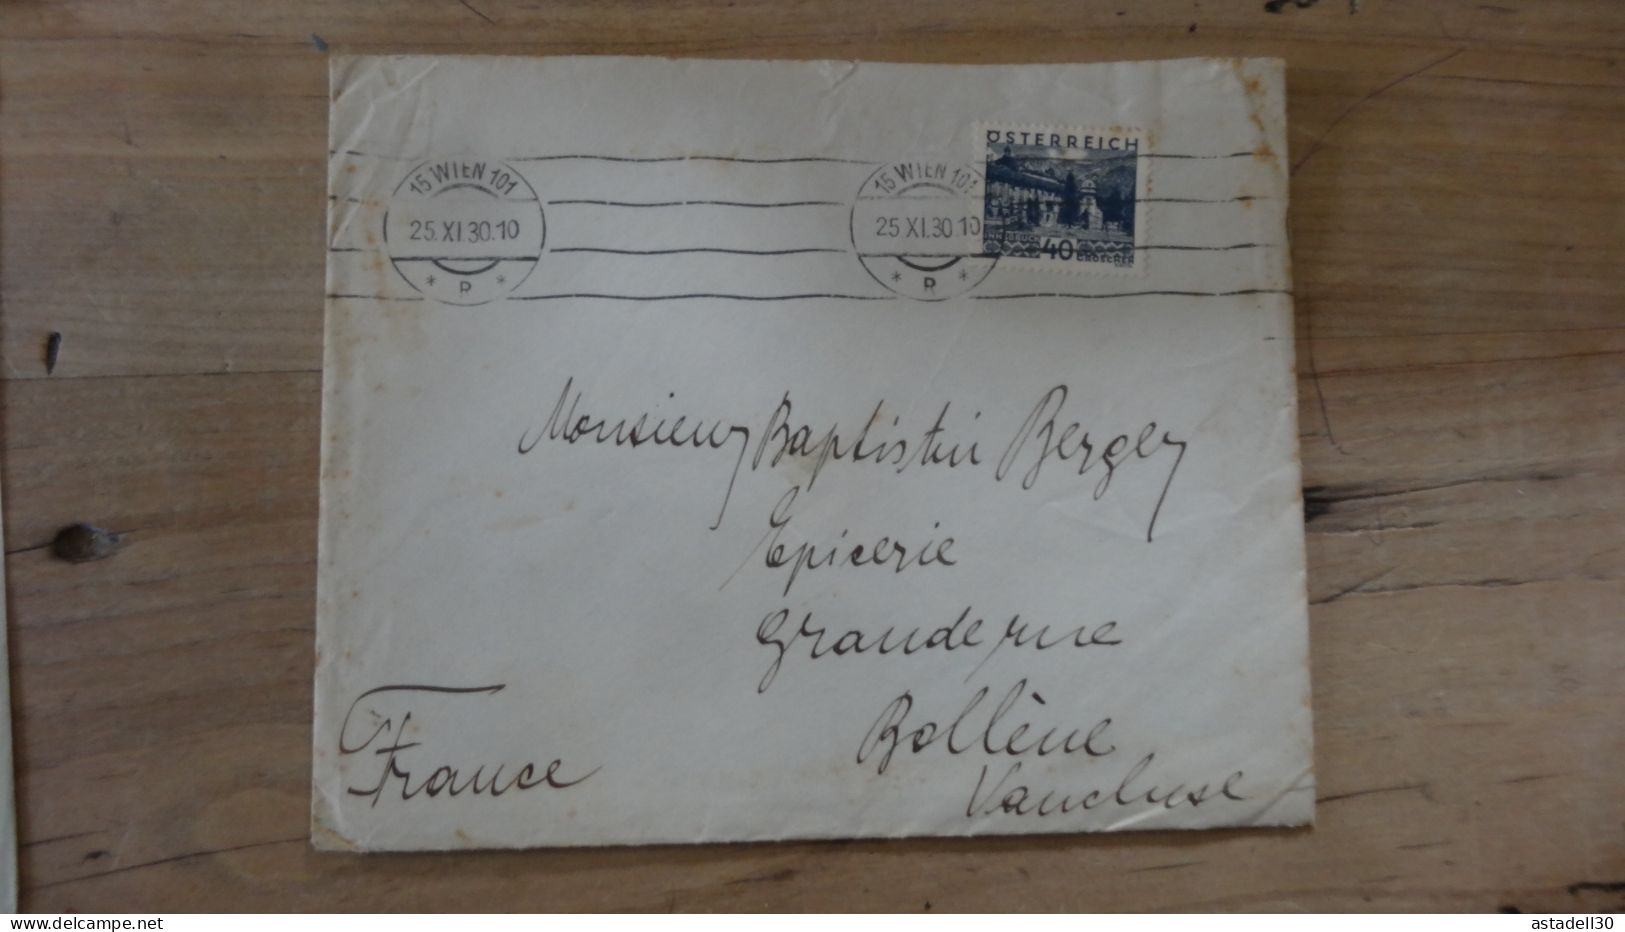 ÖSTERREICH
15 WIEN 101
25.XI.30.10
* R *
15 WIEN 101
25.XI.30.10
* R *
INNSBRUCK 40 GROSCHEN
Monsieur Baptistin Berger
Epicerie
Grande rue
Bollène
Vaucluse
France
delcampe.net
astadell30